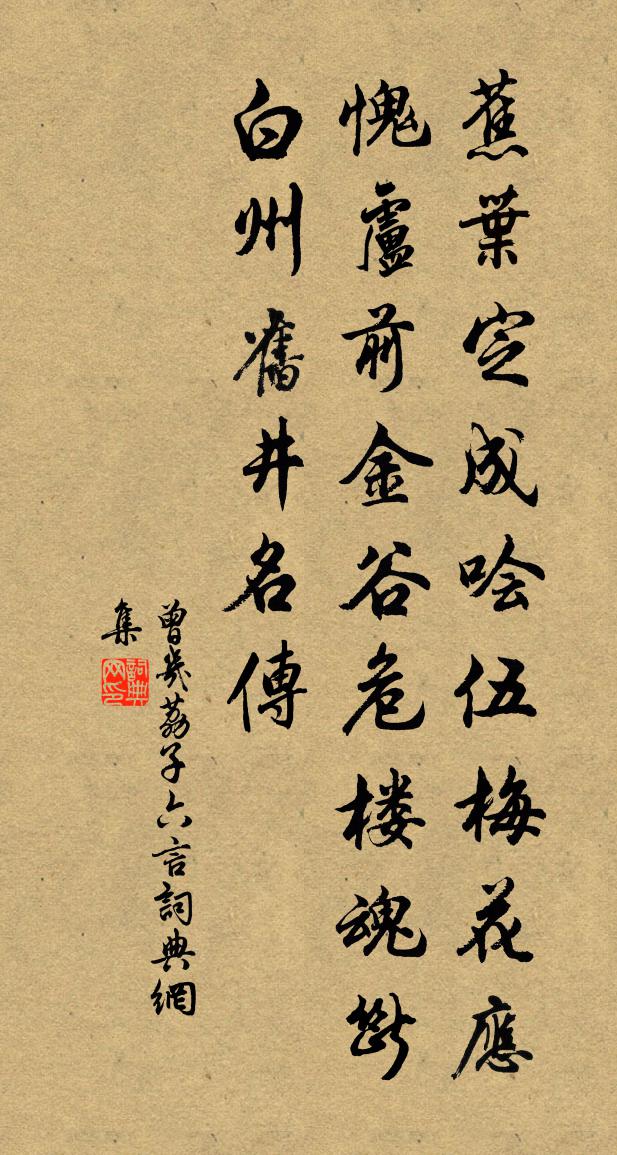 蕉葉定成噲伍梅花應
愧盧前金谷危楼魂斷
白州舊井名傳
曾幾荔子六言詞典網
集
詞典
网印